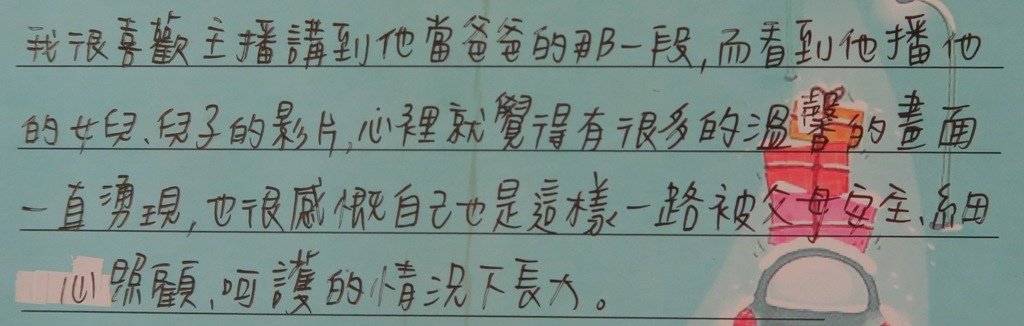 我很喜歡主播講到他當爸爸的那一段,而看到他播他
的女兒、兒子的影片,心裡就覺得有很多的溫馨的畫面
一直湧現,也很感慨自己也是這樣一路被父母安全、細
心照顧、呵護的情況下長大。